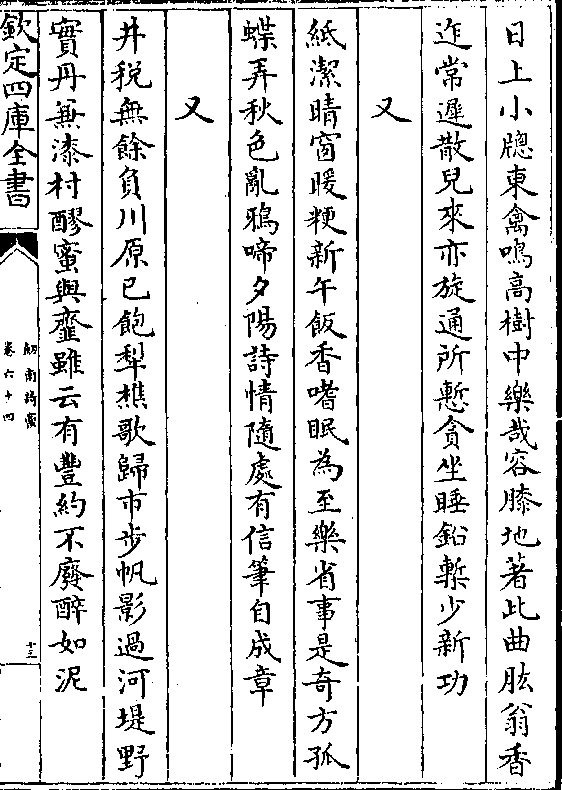 日上小牕東禽鳴高樹中樂哉容膝地著此曲肱翁香
迮常遲散兒來亦旋通所慙貪坐睡鉛槧少新功
又
紙潔晴窗暖粳新午飯香嗜眠為至樂省事是奇方孤
蝶弄秋色亂鴉啼夕陽詩情隨處有信筆自成章
又
井税無餘負川原已飽犁樵歌歸市步帆影過河堤野
實丹兼漆村醪蜜與虀雖云有豐約不廢醉如泥
欽定四庫全書
劒南詩藳
卷六十四
十三